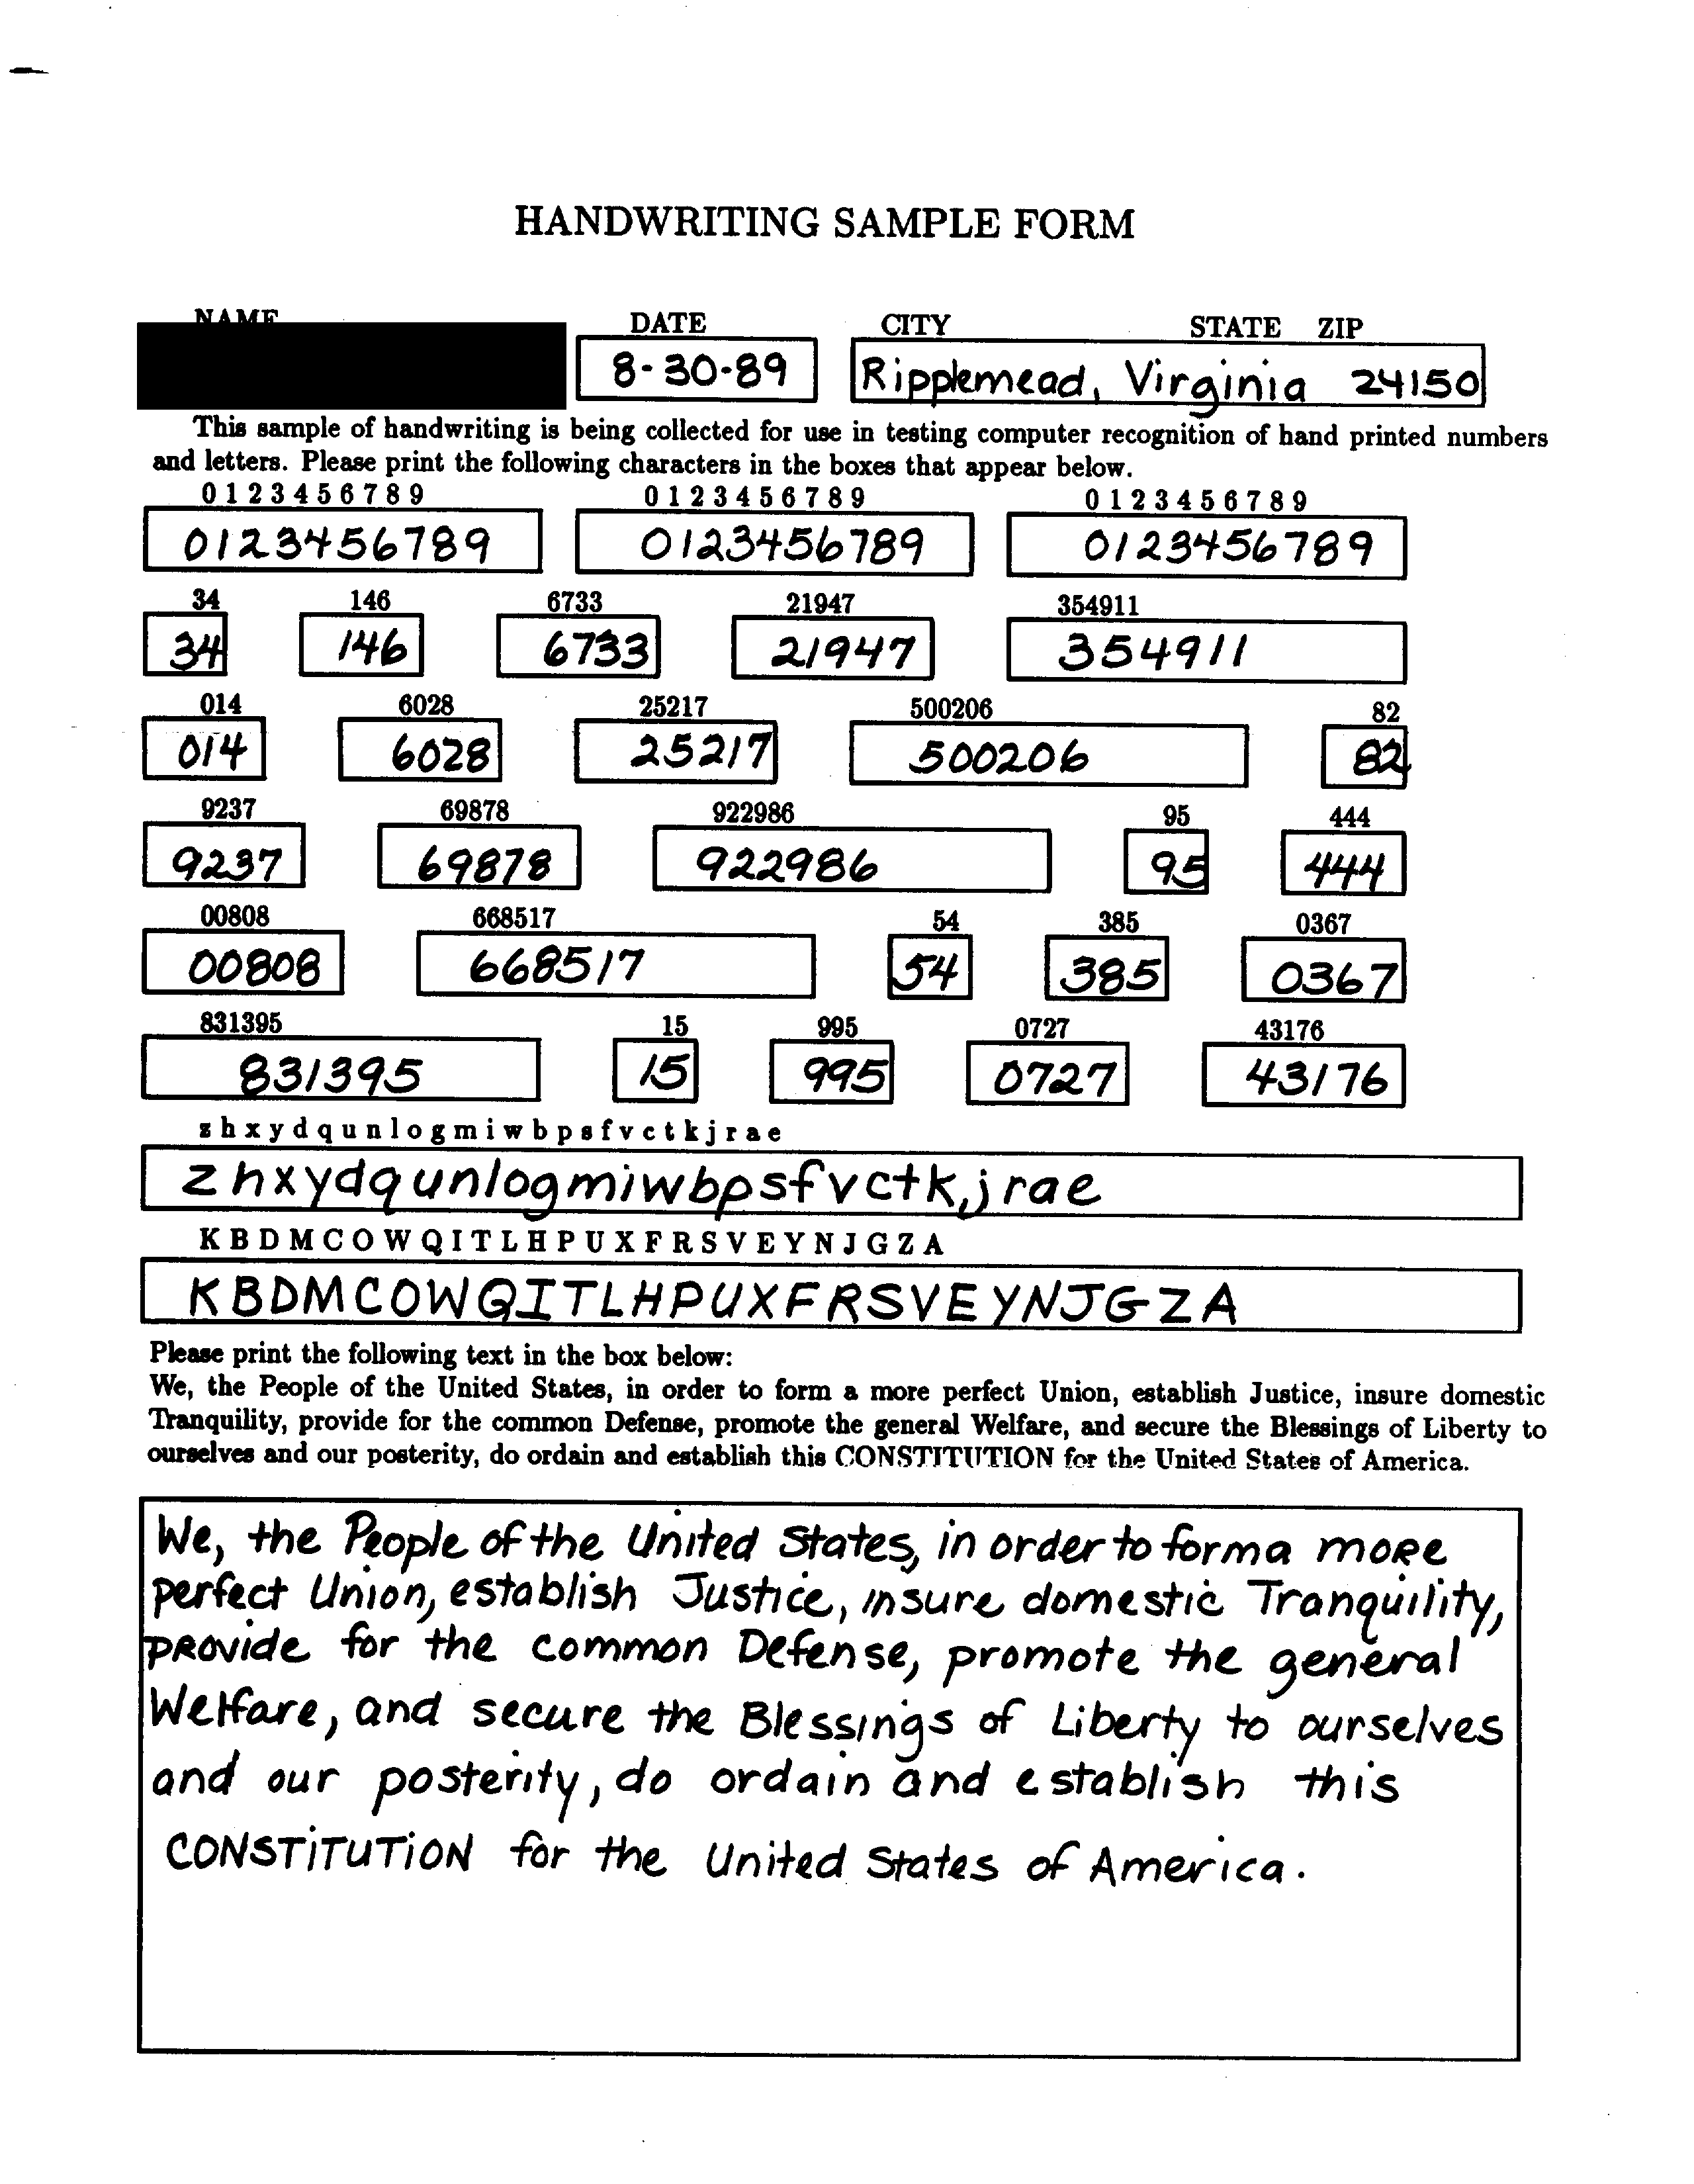 HANDWRITING SAMPLE FORM
NAME DATE CITY STATE ZIP
8-30-89 Ripplemead, Virginia 24150
This sample of handwriting is being collected for use in testing computer recognition of hand printed numbers
and letters. Please print the following characters in the boxes that appear below.
0 1 2 3 4 5 6 7 8 9 0 1 2 3 4 5 6 7 8 9 0 1 2 3 4 5 6 7 8 9
0123456789 0123456789 0123456789
34 146 6733 21947 354911
34 146 6733 21947 354911
014 6028 25217 500206 82
014 6028 25217 500206 82
9237 69878 922986 95 444
9237 69878 922986 95 444
00808 668517 54 385 0367
00808 668517 54 385 0367
831395 15 995 0727 43176
831395 15 995 0727 43176
z h x y d q u n l o g m i w b p s f v c t k j r a e
zhxydqunlogmiwbpsfvctk,jrae
K B D M C O W Q I T L H P U X F R S V E Y N J G Z A
KBDMCOWQITLHPUXFRSVEYNJGZA
Please print the following text in the box below:
We, the People of the United States, in order to form a more perfect Union, establish Justice, insure domestic
Tranquility, provide for the common Defense, promote the general Welfare, and secure the Blessings of Liberty to
ourselves and our posterity, do ordain and establish this CONSTITUTION for the United States of America.
We, the People of the United States, in order to form a more
perfect Union, establish Justice, insure domestic Tranquility,
provide for the common Defense, promote the general
Welfare, and secure the Blessings of Liberty to ourselves
and our posterity, do ordain and establish this
CONSTiTUTiON for the United States of America.